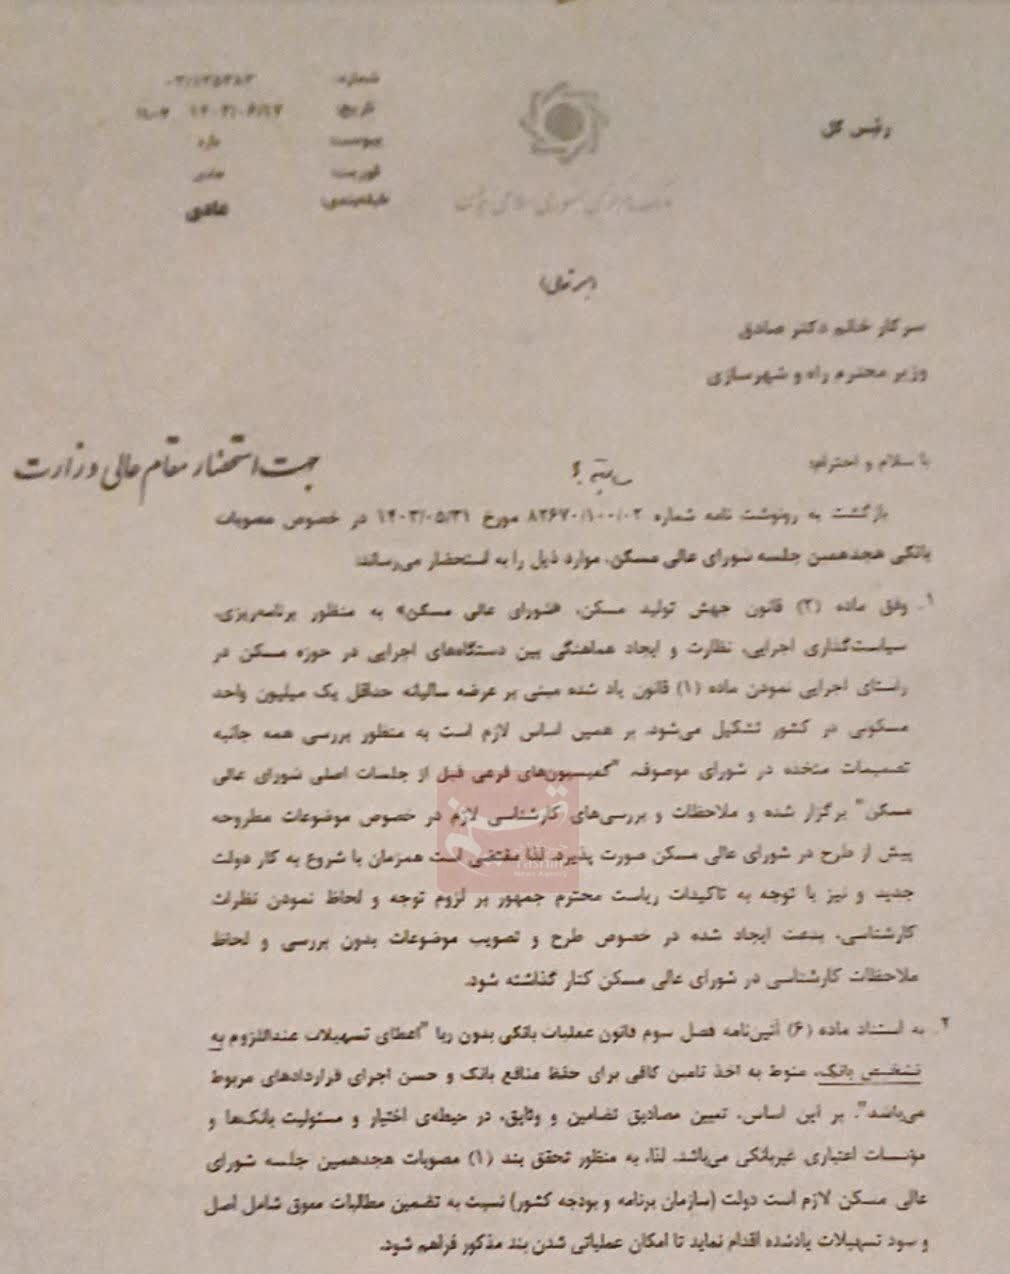 رئیس کل
شماره:
تاریخ: ۱۴۰۳/۰۶/۱۷
پیوست:
فوریت: عادی
طبقه‌بندی: عادی
بانک مرکزی جمهوری اسلامی ایران
(بسمه تعالی)
سرکار خانم دکتر صادق
وزیر محترم راه و شهرسازی
جهت استحضار مقام عالی وزارت
با سلام و احترام؛
بازگشت به رونوشت نامه شماره ۸۲۶۷۰/۱۰۰/۰۲ مورخ ۱۴۰۳/۰۵/۳۱ در خصوص مصوبات
بانکی هجدهمین جلسه شورای عالی مسکن، موارد ذیل را به استحضار می‌رساند:
۱. وفق ماده (۲) قانون جهش تولید مسکن، «شورای عالی مسکن» به منظور برنامه‌ریزی،
سیاست‌گذاری اجرایی، نظارت و ایجاد هماهنگی بین دستگاه‌های اجرایی در حوزه مسکن در
راستای اجرایی نمودن ماده (۱) قانون یاد شده مبنی بر عرضه سالیانه حداقل یک میلیون واحد
مسکونی در کشور تشکیل می‌شود. بر همین اساس لازم است به منظور بررسی همه جانبه
تصمیمات متخذه در شورای موصوف، "کمیسیون‌های فرعی قبل از جلسات اصلی شورای عالی
مسکن" برگزار شده و ملاحظات و بررسی‌های کارشناسی لازم در خصوص موضوعات مطروحه
پیش از طرح در شورای عالی مسکن صورت پذیرد. لذا مقتضی است همزمان با شروع به کار دولت
جدید و نیز با توجه به تاکیدات ریاست محترم جمهور بر لزوم توجه و لحاظ نمودن نظرات
کارشناسی، بدعت ایجاد شده در خصوص طرح و تصویب موضوعات بدون بررسی و لحاظ
ملاحظات کارشناسی در شورای عالی مسکن کنار گذاشته شود.
۲. به استناد ماده (۶) آئین‌نامه فصل سوم قانون عملیات بانکی بدون ربا "اعطای تسهیلات عنداللزوم به
تشخیص بانک، منوط به اخذ تامین کافی برای حفظ منافع بانک و حسن اجرای قراردادهای مربوط
می‌باشد". بر این اساس، تعیین مصادیق تضامین و وثایق، در حیطه‌ی اختیار و مسئولیت بانک‌ها و
مؤسسات اعتباری غیربانکی می‌باشد. لذا، به منظور تحقق بند (۱) مصوبات هجدهمین جلسه شورای
عالی مسکن لازم است دولت (سازمان برنامه و بودجه کشور) نسبت به تضمین مطالبات معوق شامل اصل
و سود تسهیلات یادشده اقدام نماید تا امکان عملیاتی شدن بند مذکور فراهم شود.
تسنیم
Tasnim
News Agency